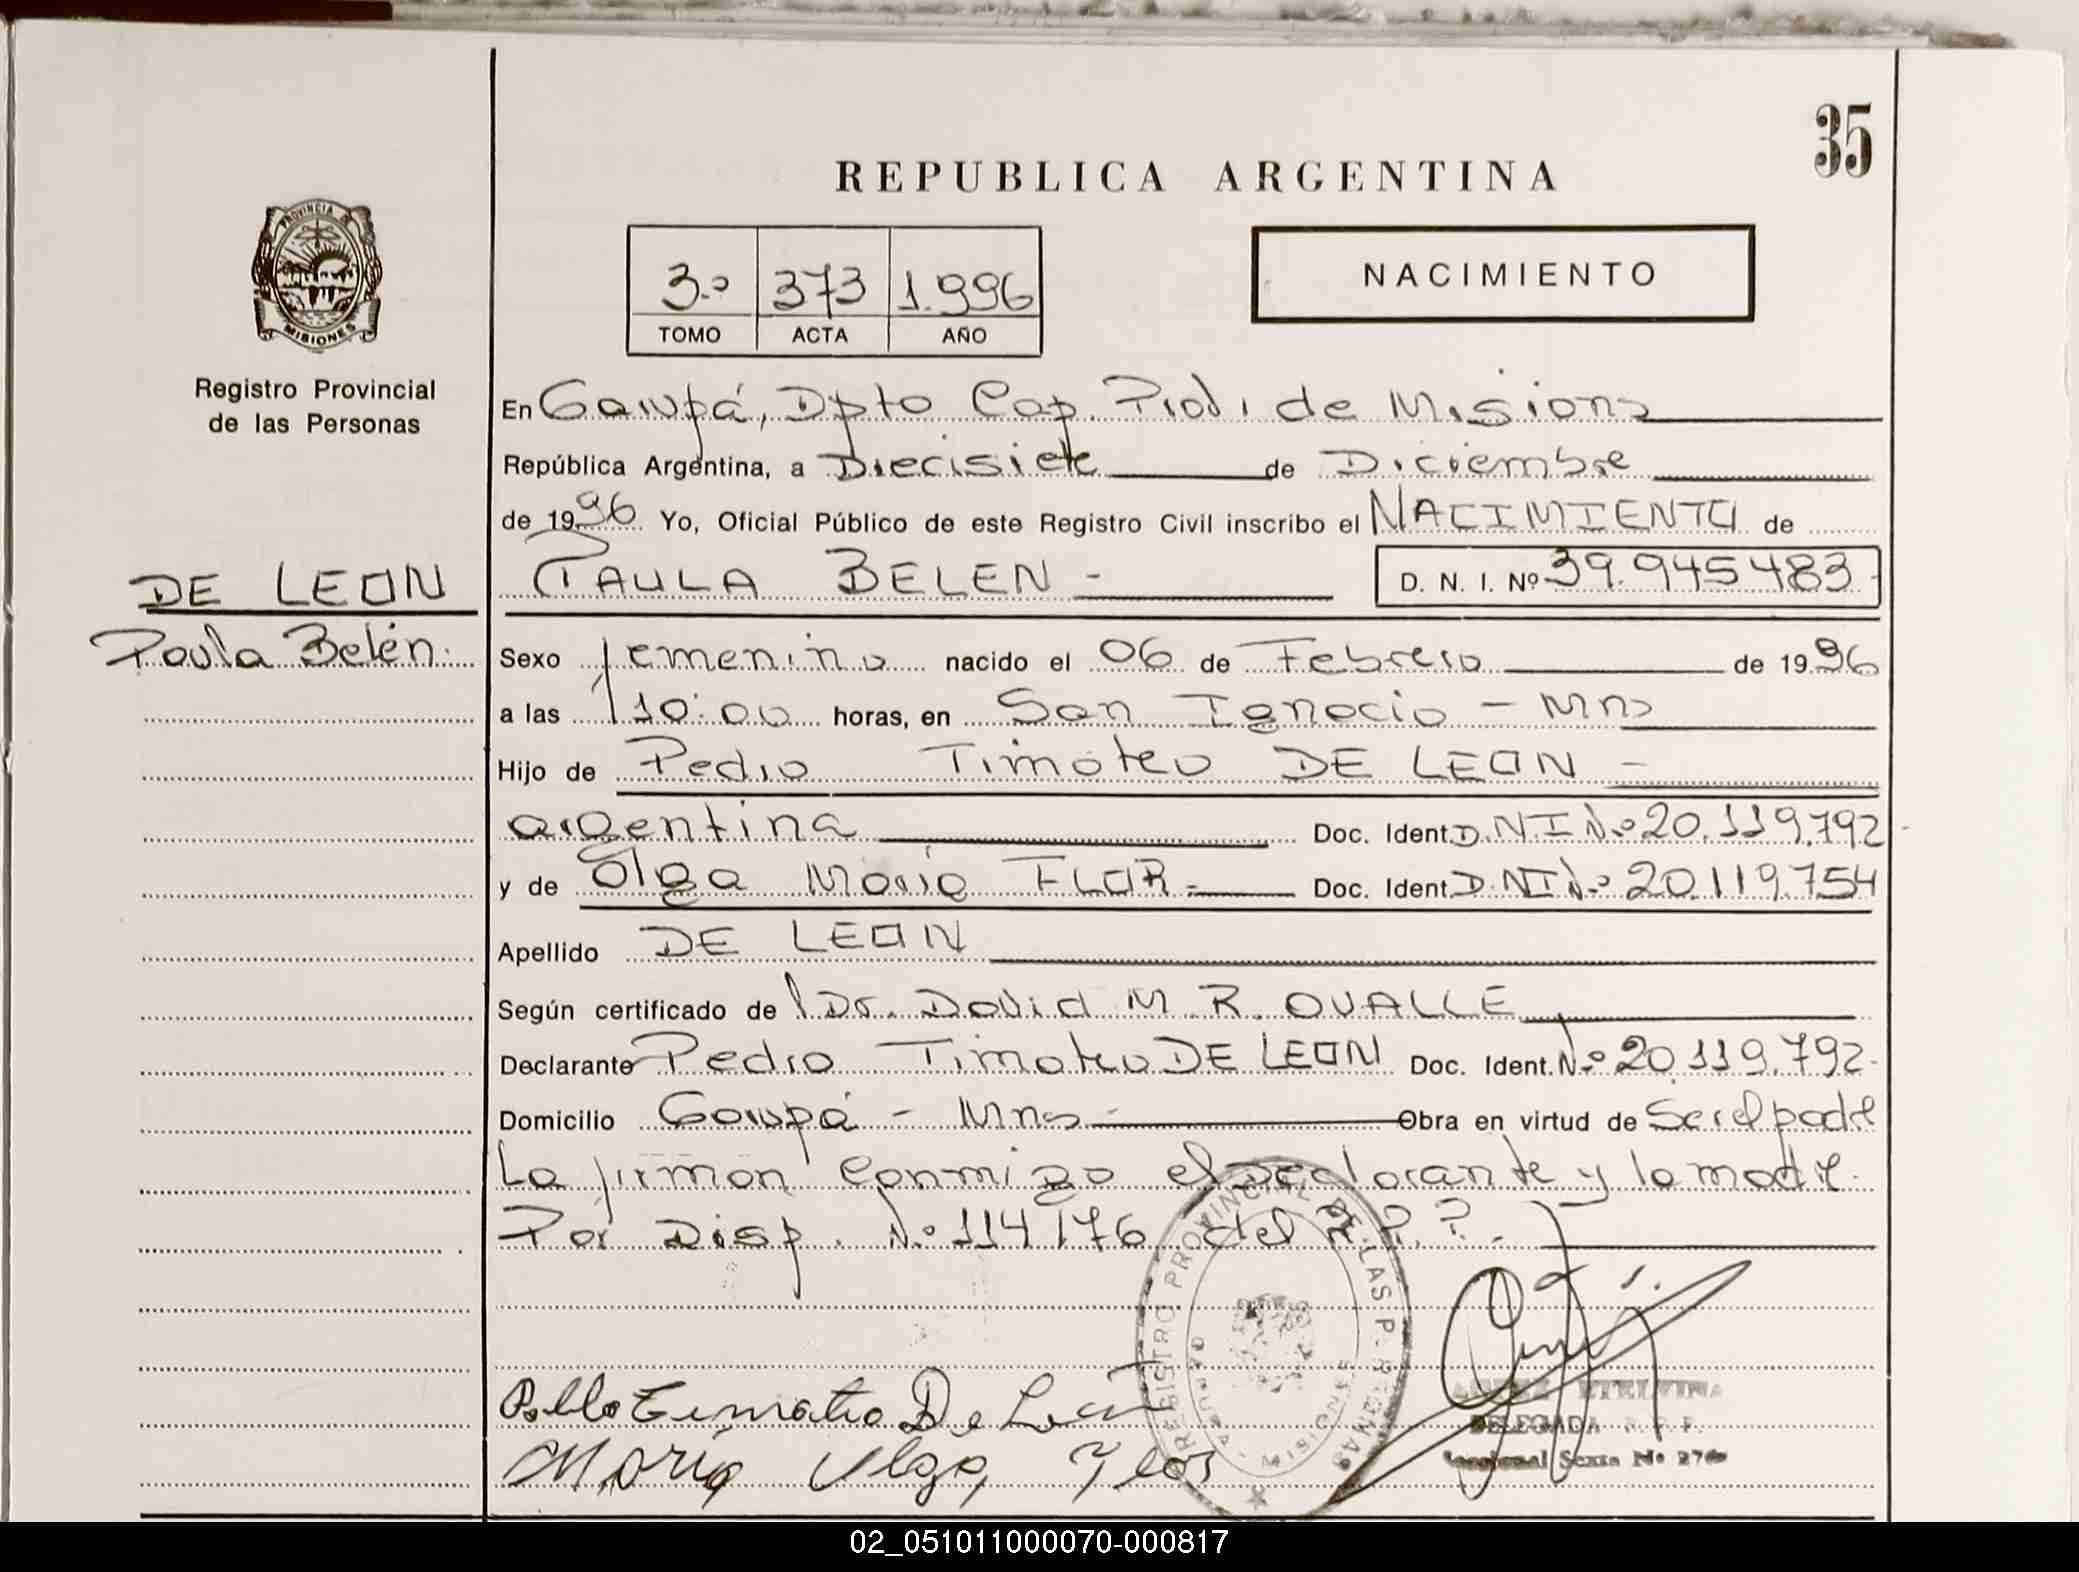 35
REPUBLICA ARGENTINA
PROVINCIA DE
MISIONES
3.º 373 1.996
TOMO ACTA AÑO
NACIMIENTO
Registro Provincial
de las Personas
En Garupá, Dpto Cap. Prov. de Misiones
República Argentina, a Diecisiete de Diciembre
de 1996 Yo, Oficial Público de este Registro Civil inscribo el NACIMIENTO de
DE LEON PAULA BELEN - D. N. I. Nº 39.945483-
Paula Belén. Sexo femenino nacido el 06 de Febrero de 1996
a las 10:00 horas, en San Ignacio - Mnes
Hijo de Pedro Timoteo DE LEON -
argentina Doc. Ident. D.N.I Nº 20.119.792
y de Olga María FLOR - Doc. Ident. D.NI Nº 20.119.754
Apellido DE LEON
Según certificado de Dr. David M. R. OVALLE
Declarante Pedro Timoteo DE LEON Doc. Ident. Nº 20.119.792-
Domicilio Garupá - Mnes - Obra en virtud de Ser el padre
La firman conmigo el Declarante y la madre.
Por Disp. Nº 114/76 del R.P.P.
REGISTRO PROVINCIAL DE LAS PERSONAS
MISIONES
Timoteo De León
María Olga Flor
ETELVINA
DELEGADA R. P. P.
Seccional Sexta Nº 276
02_051011000070-000817